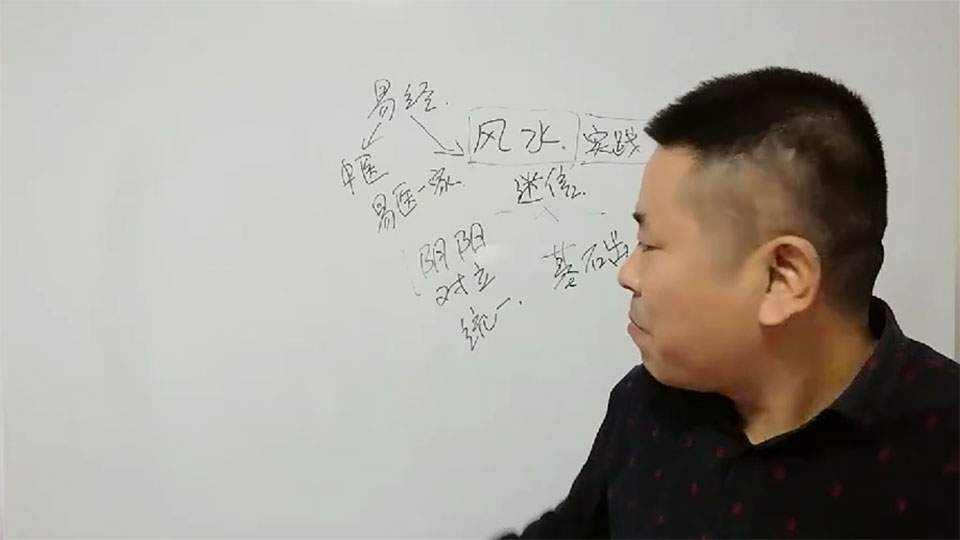 易经.
风水. 实践
中医
易医一家.
迷信.
阴阳
对立
统一.
基石